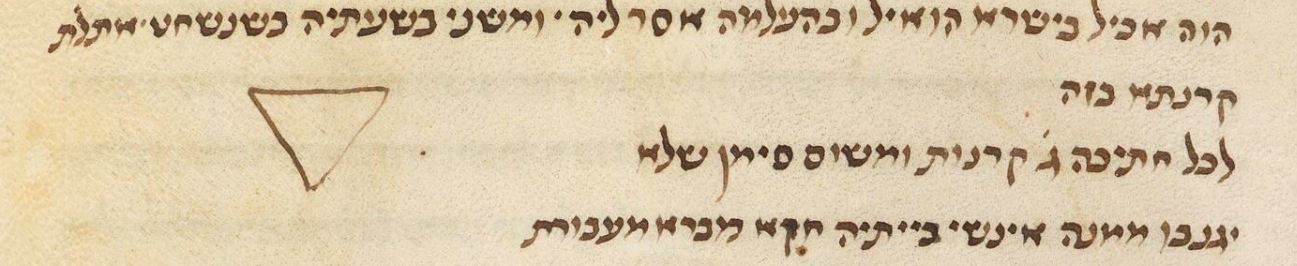 הוה אכיל בישרא הואיל ובהעלמה אסר ליה · ומשני בשעתיה כשנשחט · אתלת
קרנתא כזה
לכל חתיכה ג' קרנות ומשום סימן שלא
יגנבו ממנה אינשי בייתיה חקא מברא מעבורת